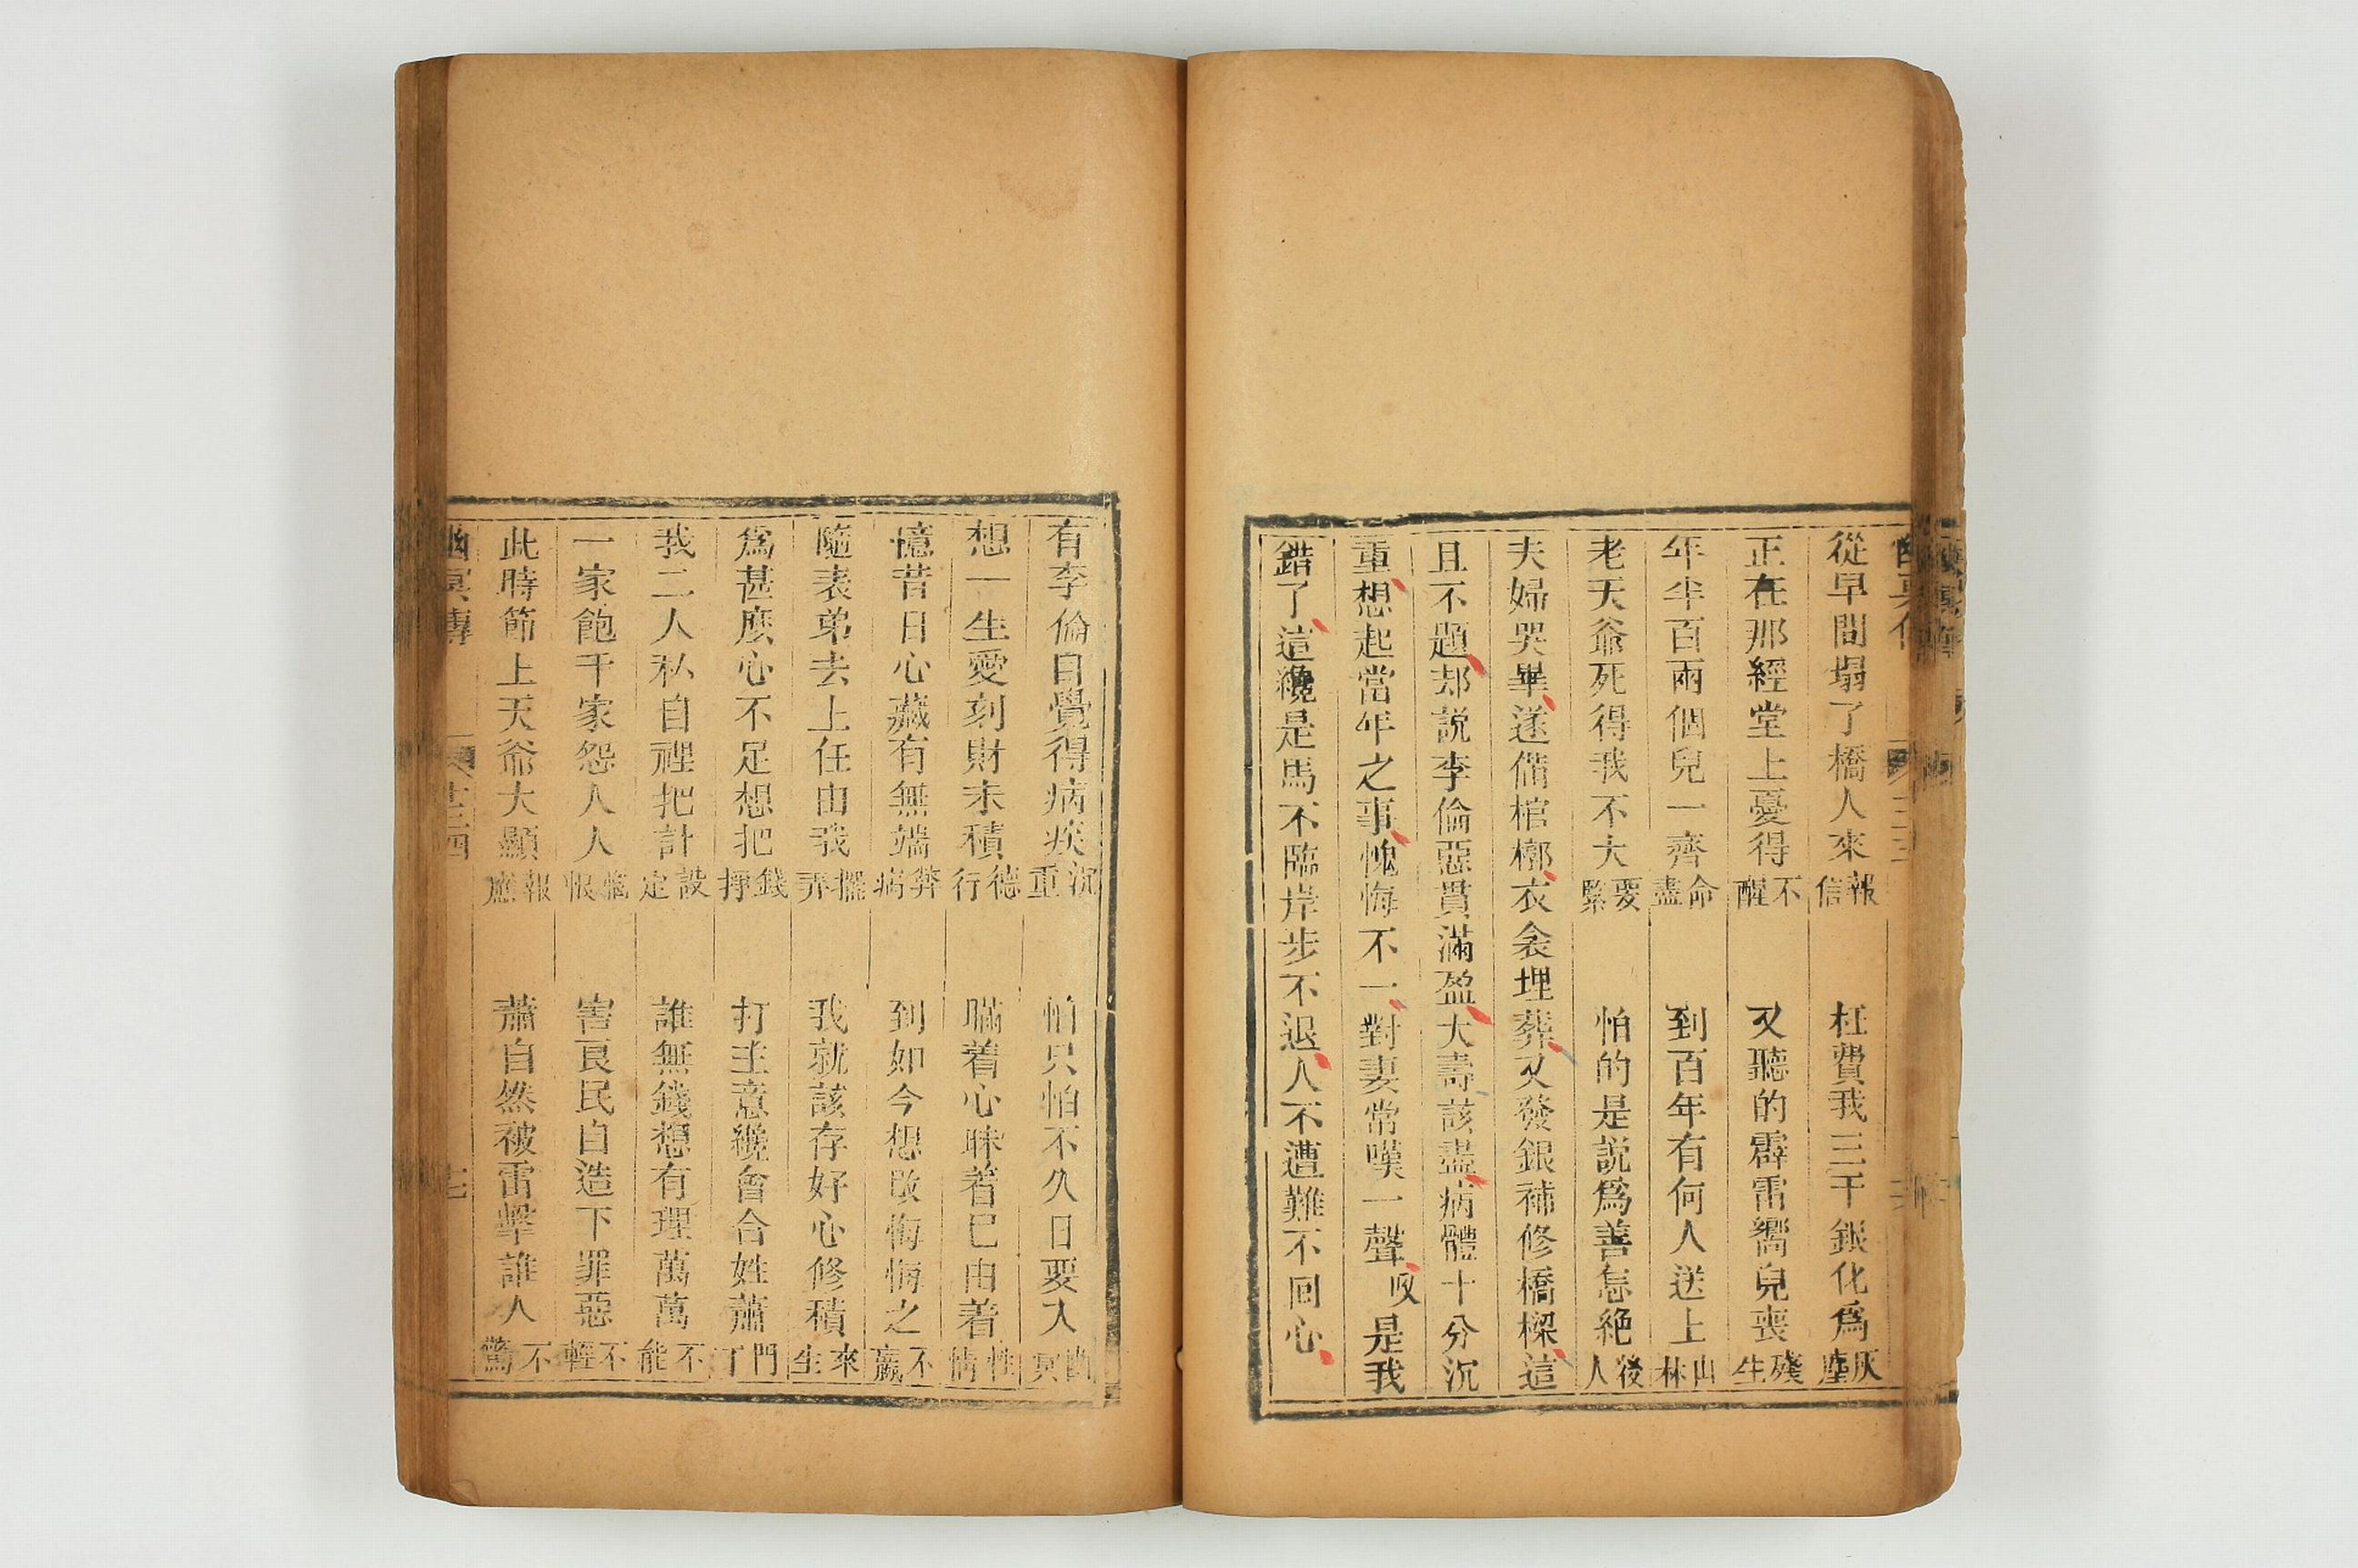 從早間塌了橋人來報信　枉費我三千銀化爲灰塵
正在那經堂上憂得不醒　又聽的霹雷嚮兒喪殘生
年半百兩個兒一齊命盡　到百年有何人送上山林
老天爺死得我不大要緊　怕的是説爲善怎絕後人
夫婦哭畢遂俻棺槨衣衾埋葬又發銀補修橋樑這
且不題却説李倫惡貫滿盈大壽該盡病體十分沉
重想起當年之事愧悔不一對妻常嘆一聲叹是我
錯了這纔是馬不臨岸步不退人不遭難不回心
有李倫自覺得病疾沉重　怕只怕不久日要入幽冥
想一生愛刻財未積德行　瞞着心昧着已由着性情
憶昔日心藏有無端弊病　到如今想改悔悔之不嬴
隨表弟去上任由我擺弄　我就該存好心修積來生
爲甚麽心不足想把錢掙　打主意纔會合姓蕭門丁
我二人私自裡把計設定　誰無錢想有理萬萬不能
一家飽千家怨人人惱恨　害良民自造下罪惡不輕
此時節上天爺大顯報應　蕭自然被雷擊誰人不驚
幽冥傳